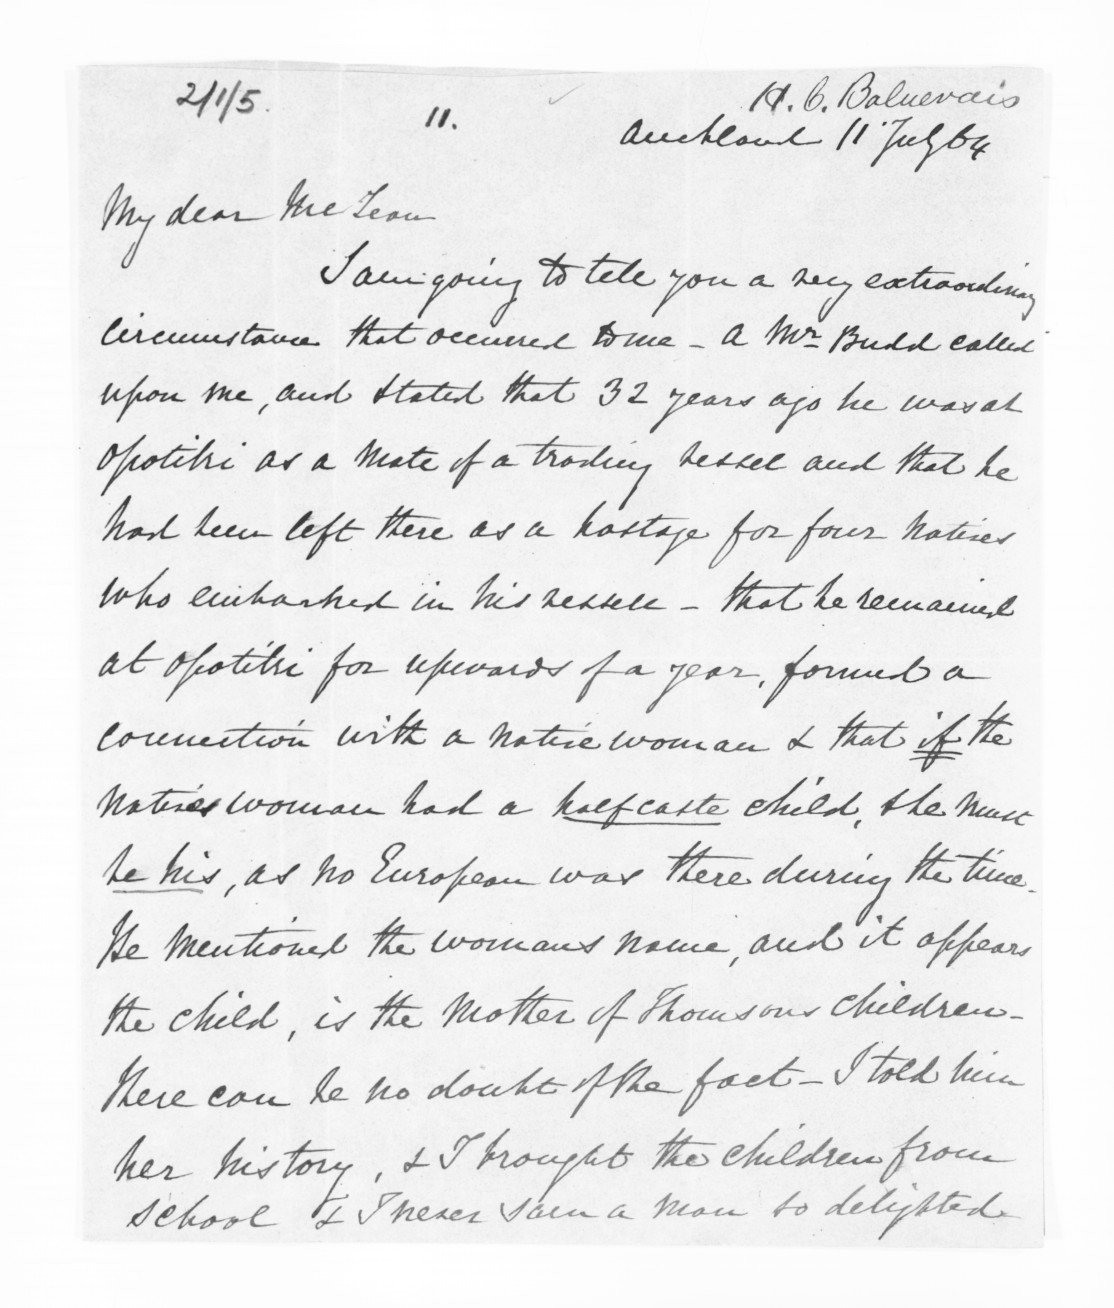 2/1/5.
11.
H. C. Balneavis
Auckland 11 July 64
My dear McLean
I am going to tell you a very extraordinary
circumstance that occurred to me - A Mr Budd called
upon me, and stated that 32 years ago he was at
Opotiki as a Mate of a trading vessel and that he
had been left there as a hostage for four Natives
who embarked in his vessel - that he remained
at Opotiki for upwards of a year, formed a
connection with a Native woman & that if the
Natives woman had a half caste child, she must
be his, as no European was there during the time.
He mentioned the womans name, and it appears
the child, is the Mother of Thomsons children -
there can be no doubt of the fact - I told him
her history, & I brought the children from
school & I never saw a man so delighted